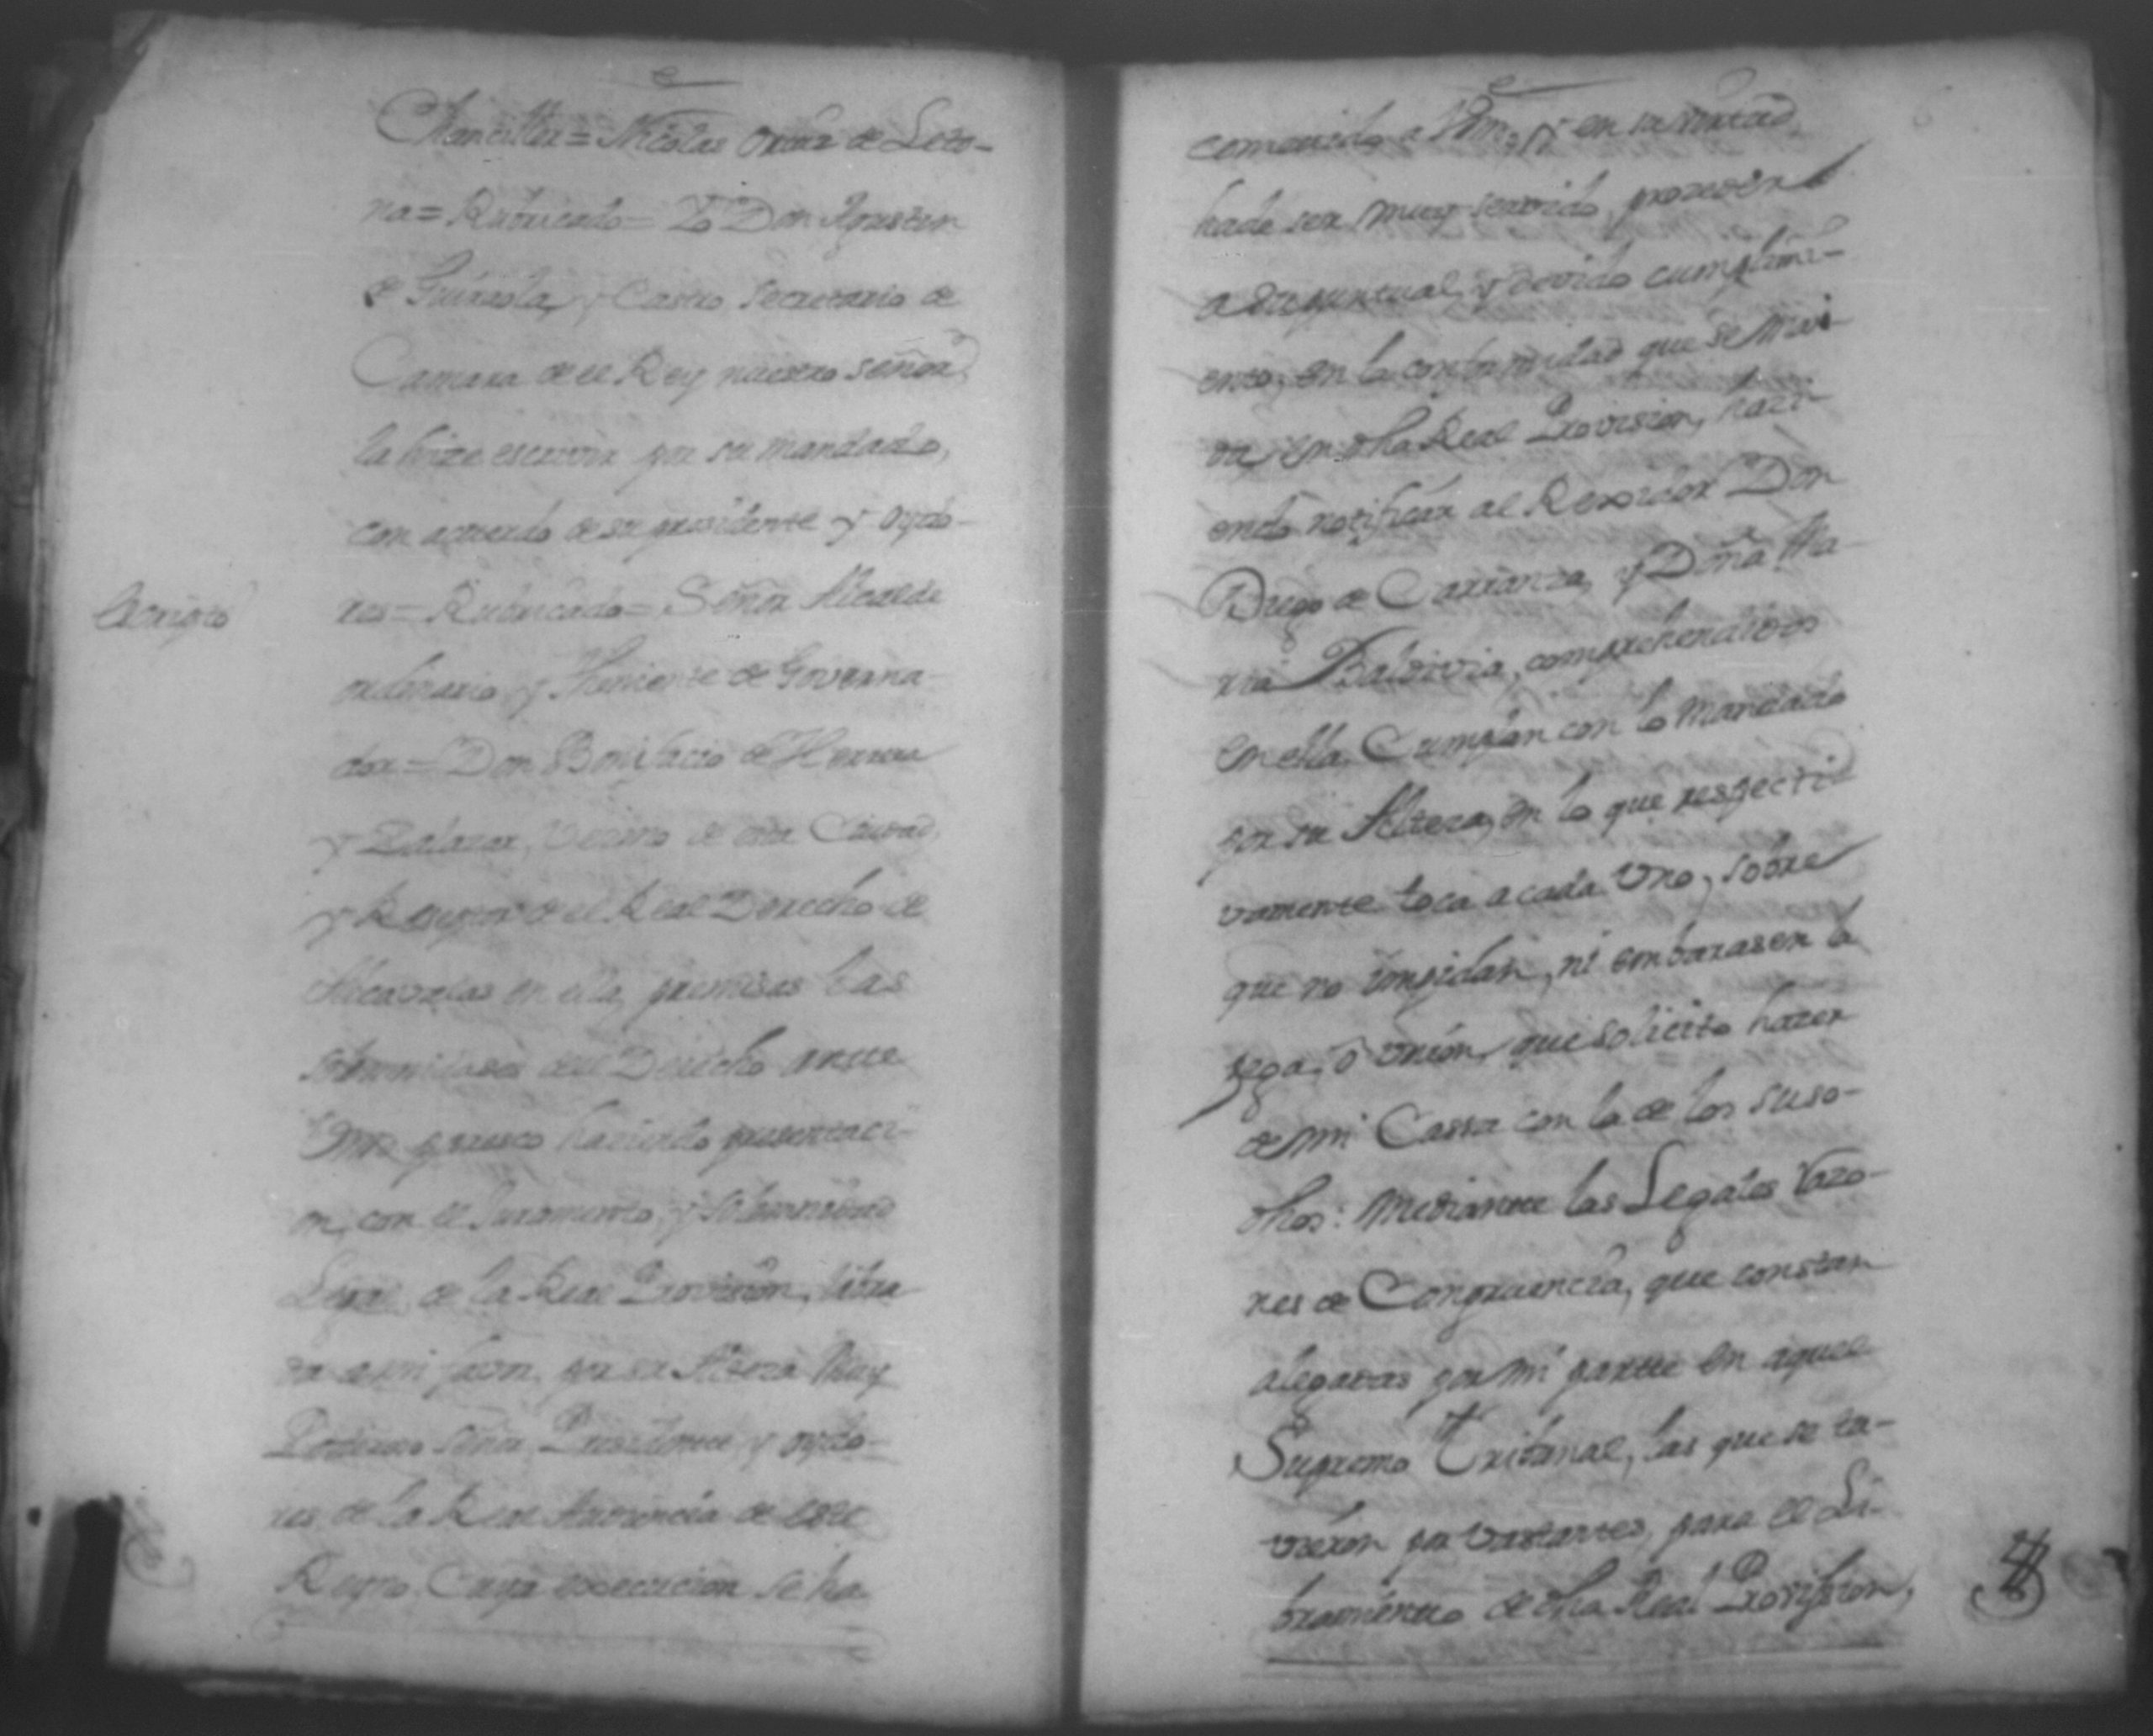 Chanciller = Nicolas Ortiz de Leto-
na = Rubricado = Yo Don Agustin
de Guirăola y Castro Secretario de
Camara de el Rey nuestro señor
la hize escrivir por su mandado,
con acuerdo de su presidente y oydo-
Escripto
res = Rubricado = Señor Alcalde
ordinario y Theniente de Governa-
dor = Don Bonifacio de Herrera
y Salazar, Vezino de esta Ciudad
y Rezeptor de el Real Derecho de
Alcavalas en ella, premisas las
solemnidades del Derecho ante
Vmd paresco haciendo presentaci-
on, con el Juramento, y solemnidad
Legal de la Real Provision, libra-
da a mi favor, por su Alteza Muy
Poderoso Señor Presidente, y oydo-
res de la Real Audiencia de este
Reyno. Cuya execucion se ha
6
comettido a Vmd, en su virtud
ha de ser muy servido, proceder
a su puntual, y devido cumplimi-
ento, en la conformidad que se Mvi-
da, en dha Real Provision, hazi-
endo notificar al Rexidor Don
Diego de Carranza, y Doña Ma-
ria Baldivia, comprehendidos
en ella. Cumplan con lo mandado
por su Alteza, en lo que respecti-
vamente toca a cada Vno, sobre
que no impidan, ni embarasen la
pega, ô Vnion, que solicito hazer
de mi Cassa con la de los suso-
dhos: Mediante las Legales razo-
nes de Congruencia, que constan
alegadas por mi parte en aquel
Supremo Tribunal, las que se tu-
vieron por vastantes, para el Li-
bramiento de dha Real Provision,